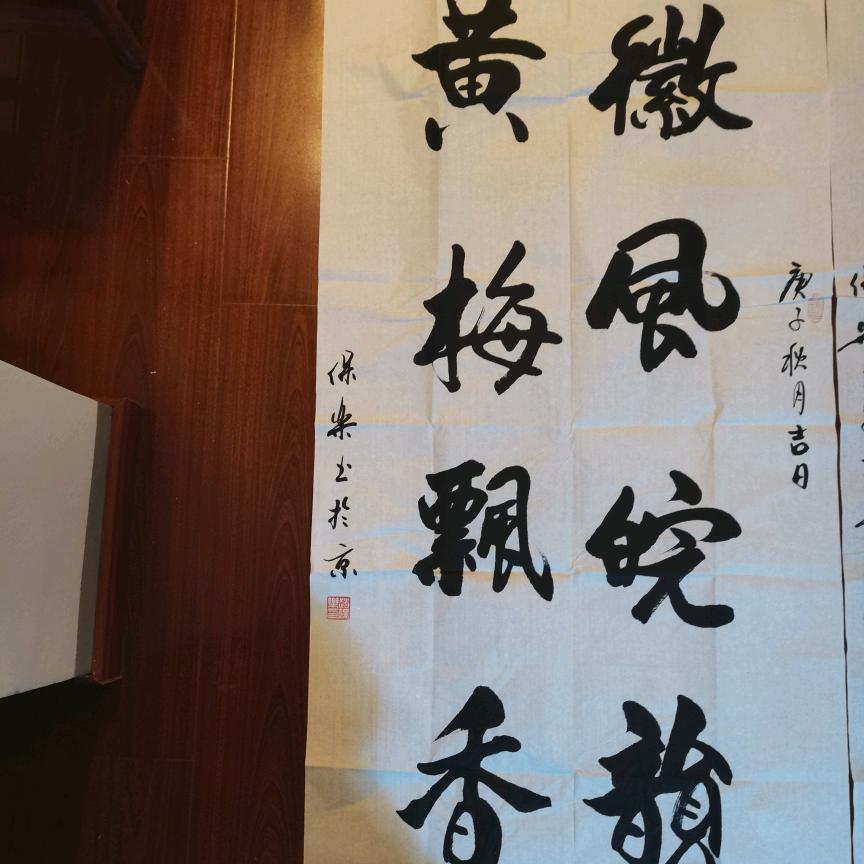 庚子秋月吉日
徽風皖韻
黄梅飄香
保樂书於京